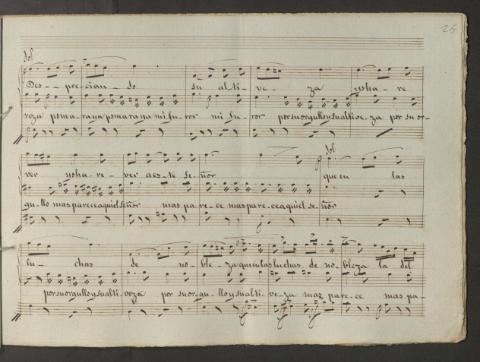 25
Sol
Des - - pre - cian - do su al ti - ve - za usha - re
roza ponea raya ponea raya mi fu - ror mi fu - ror por su orgullo y su alti - ve - za por su or -
ver usha - re - ver a es - te se - ñor que en las
gu - llo mas parece aquiel señor mas pa - re - ce mas pa - re - ce aquiel se - ñor
Sol
lu - chas de no - ble - za que en las luchas de nobleza la del
por su orgullo y su alti - veza por su or - gu - llo y su alti - ve - za mas pa - re - ce mas pa -